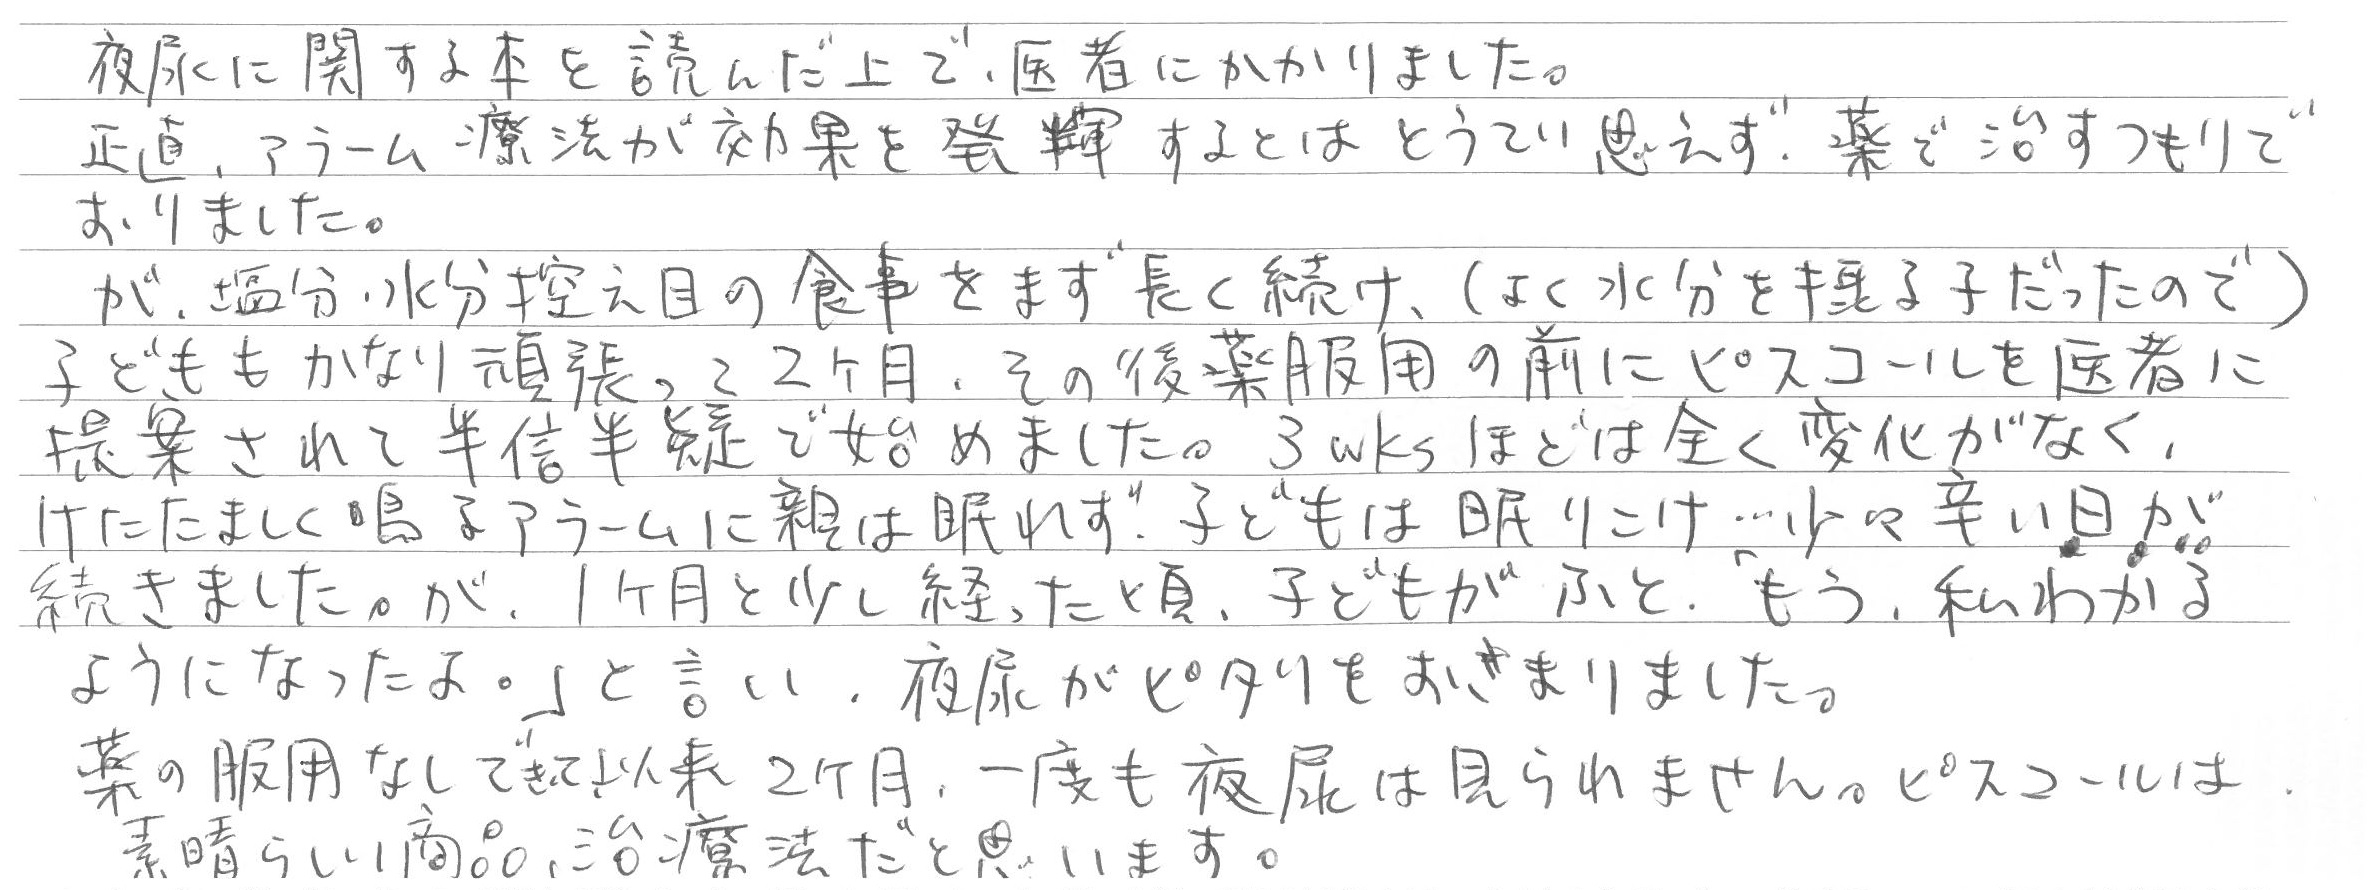 夜尿に関する本を読んだ上で、医者にかかりました。
正直、アラーム療法が効果を発揮するとはとうてい思えず、薬で治すつもりで
おりました。
が、塩分・水分控え目の食事をまず長く続け、(よく水分を摂る子だったので)
子どももかなり頑張って2ケ月、その後薬服用の前にピスコールを医者に
提案されて半信半疑で始めました。3wksほどは全く変化がなく、
けたたましく鳴るアラームに親は眠れず、子どもは眠りこけ…少々辛い日が
続きました。が、1ケ月と少し経った頃、子どもがふと、「もう、私わかる
ようになったよ。」と言い、夜尿がピタリとおさまりました。
薬の服用なしできて以来2ケ月、一度も夜尿は見られません。ピスコールは
素晴らしい商品、治療法だと思います。